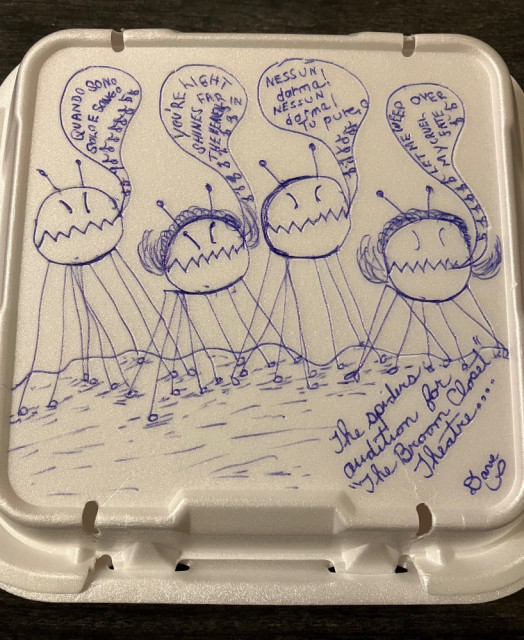 QUANDO SONO
SOLO E SOGNO
YOU'RE LIGHT
SHINES FAR
THE
NESSUN!
dorma!
NESSUN
dorma!
Tu pure
LET ME WEEP
MY CRUEL OVER
FATE
The spiders'
audition for
"The Broom Closet"
Theatre....
Dave